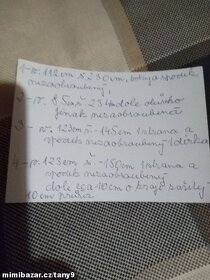 1 - v. 112cm š 230cm, boky a spodek
nezaobroubený,
2 - v. 85cm š 234 dole
jinak nezaobroubená
3 - v. 123cm š - 145cm 1 strana a
spodek nezaobroubený 1 dírka
4 - v. 123cm š - 150cm 1 strana a
spodek nezaobroubený
dole 10cm o kraje zašitý
10cm
mimibazar.cz/tany9